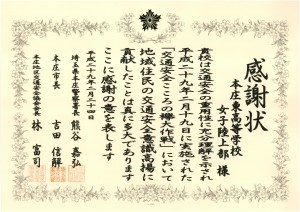 感謝状
本庄東高等学校
女子陸上部 様
貴校は交通安全の重用性に充分理解を示され
平成二十九年二月十九日に実施された
「交通安全こころの襷大作戦」において
地域住民の交通安全意識高揚に
貢献したことは真に多大であります
ここに感謝の意を表します
平成二十九年三月二十日
埼玉県本庄警察署長 熊谷嘉弘
本庄市長 吉田信解
本庄地区交通安全協会会長 林富司